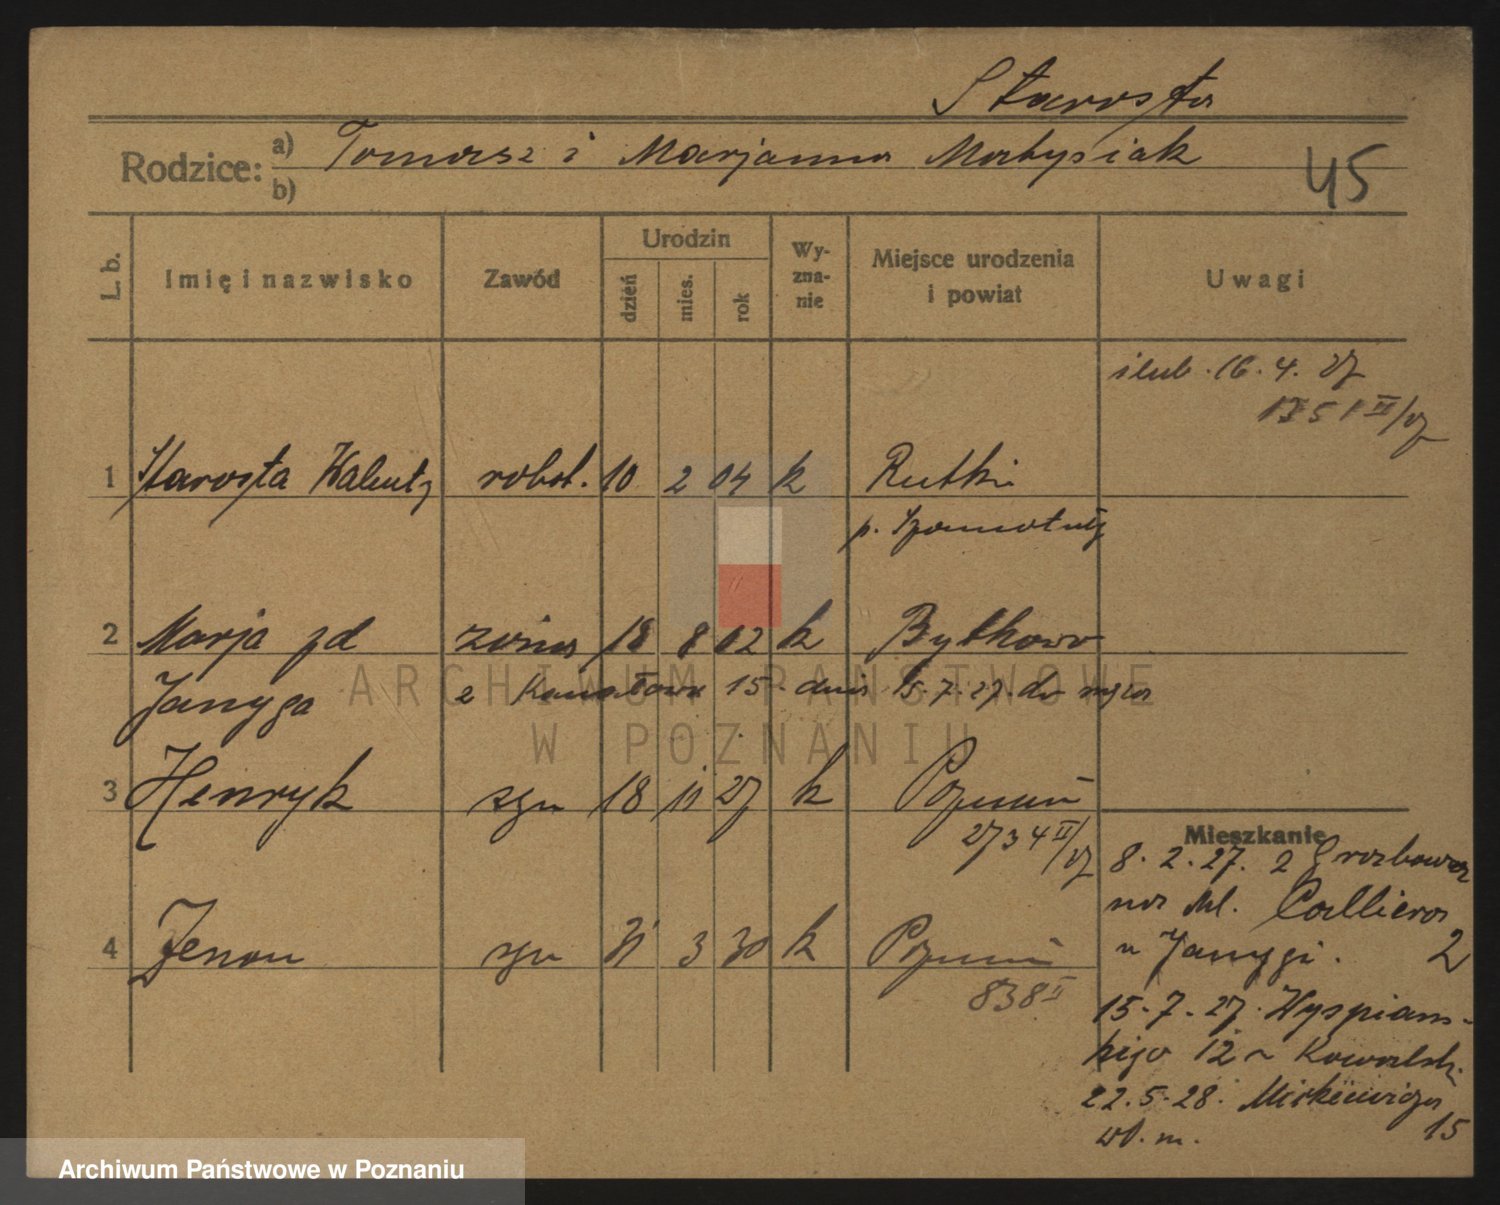 Starosta
Rodzice: a) Tomasz i Marjanna Matysiak
b)
45
L. b. Imię i nazwisko Zawód Urodzin dzień mies. rok Wy-zna-nie Miejsce urodzenia i powiat Uwagi
ślub. 16. 4. 27
1351 II/27
1 Starosta Walenty robot. 10 2 04 k Rutki
p. Szamotuły
2 Marja zd żona 18 8 02 k Bytkowo
Janyga z 15. dnia 15.7.27. do męża
3 Henryk syn 18 11 27 k Poznań
2734 II/27
4 Zenon syn 31 3 30 k Poznań
838 II
Mieszkanie
8. 2. 27. z Grzebowa
na Ml. Calliera
u Janygi. 2
15. 7. 27. Wyspiańs-
kiego 12 u Kowalsk.
22. 5. 28. Mickiewicza
wł. m. 15
ARCHIWUM PAŃSTWOWE
W POZNANIU
Archiwum Państwowe w Poznaniu